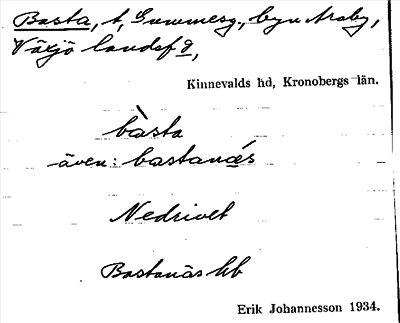 Basta, t, Gummesg., byn Araby,
Växjö landsf d,
Kinnevalds hd, Kronobergs län.
bàsta
även: bastanä́s
Nedrivet
Bastanäs hb
Erik Johannesson 1934.